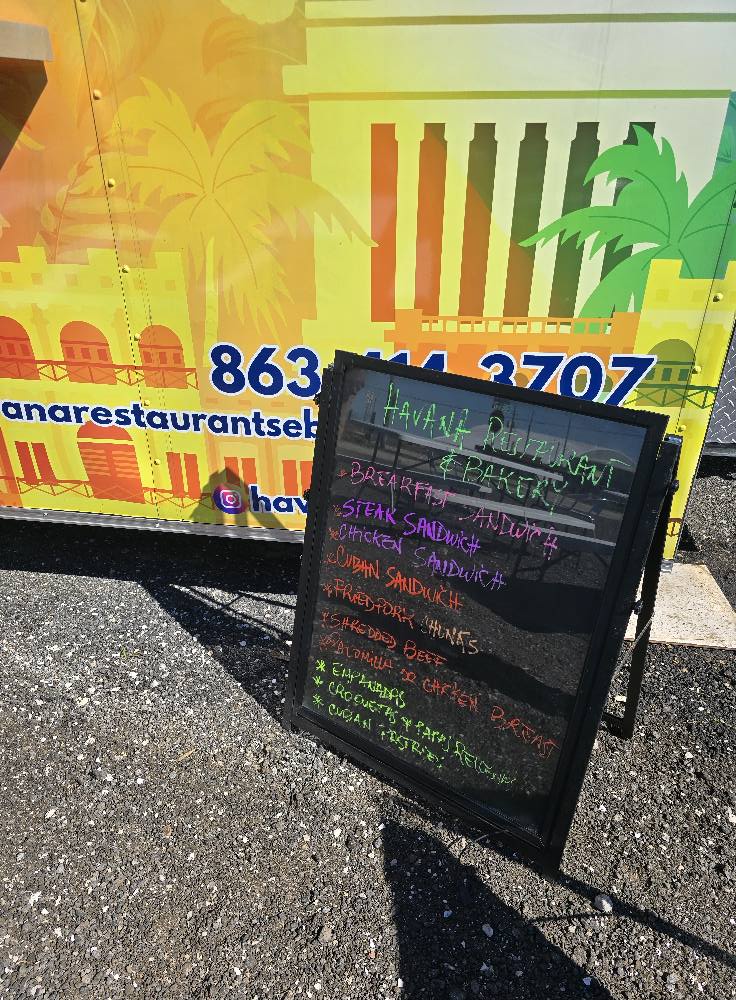 863 414 3707
anarestaurantseb
hav
HAVANA RESTAURANT
& BAKERY
* BREAKFAST SANDWICH
* STEAK SANDWICH
* CHICKEN SANDWICH
* CUBAN SANDWICH
* FRIED PORK CHUNKS
* SHREDDED BEEF
* PALOMILLA OR CHICKEN BREAST
* EMPANADAS
* CROQUETAS & PAPAS RELLENAS
* CUBAN PASTRIES